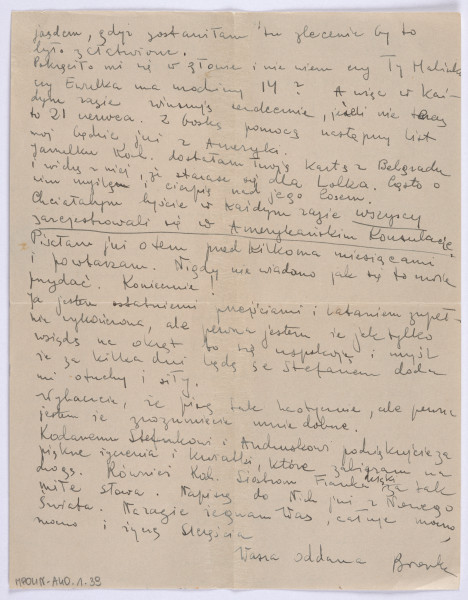 jazdem, gdyż zostawiłam tu zlecenie by to
było załatwione.
Pokręciło mi się w głowie i nie wiem czy Ty Halinko
czy Ewulka ma urodziny 14? A więc w każ-
dym razie winszuję serdecznie, jeżeli nie teraz
to 21 czerwca. Z boską pomocą następny list
mój będzie już z Ameryki.
Jarulku Koch. dostałam Twoją kartę z Belgradu
i widzę z niej, że starasz się dla Lolka. Często o
nim myślę, i cierpię nad jego losem.
Chciałabym byście w każdym razie wszyscy
zarejestrowali się w Amerykańskim Konsulacie
Pisałam już o tem przed kilkoma miesiącami
i powtarzam. Nigdy nie wiadomo jak się to może
przydać. Koniecznie!
Ja jestem ostatniemi przejściami i lataniem zupeł-
nie wykończona, ale pewna jestem że jak tylko
wsiądę na okręt to się uspokoję i myśl
że za kilka dni będę ze Stefanem doda
mi otuchy i siły.
Wybaczcie, że piszę tak chaotycznie, ale pewna
jestem że zrozumiecie mnie dobrze.
Kochanemu Stefunkowi i Andruskowi podziękujcie za
piękne życzenia i kwiatki, które zabieram na
drogę. Również Koch. Siostrom Franka za tak
miłe słowa. Napiszę do Nich już z Nowego
Świata. Narazie żegnam Was, całuję mocno,
mocno i życzę Szczęścia
Wasza oddana
MPOLIN-A40.1.39